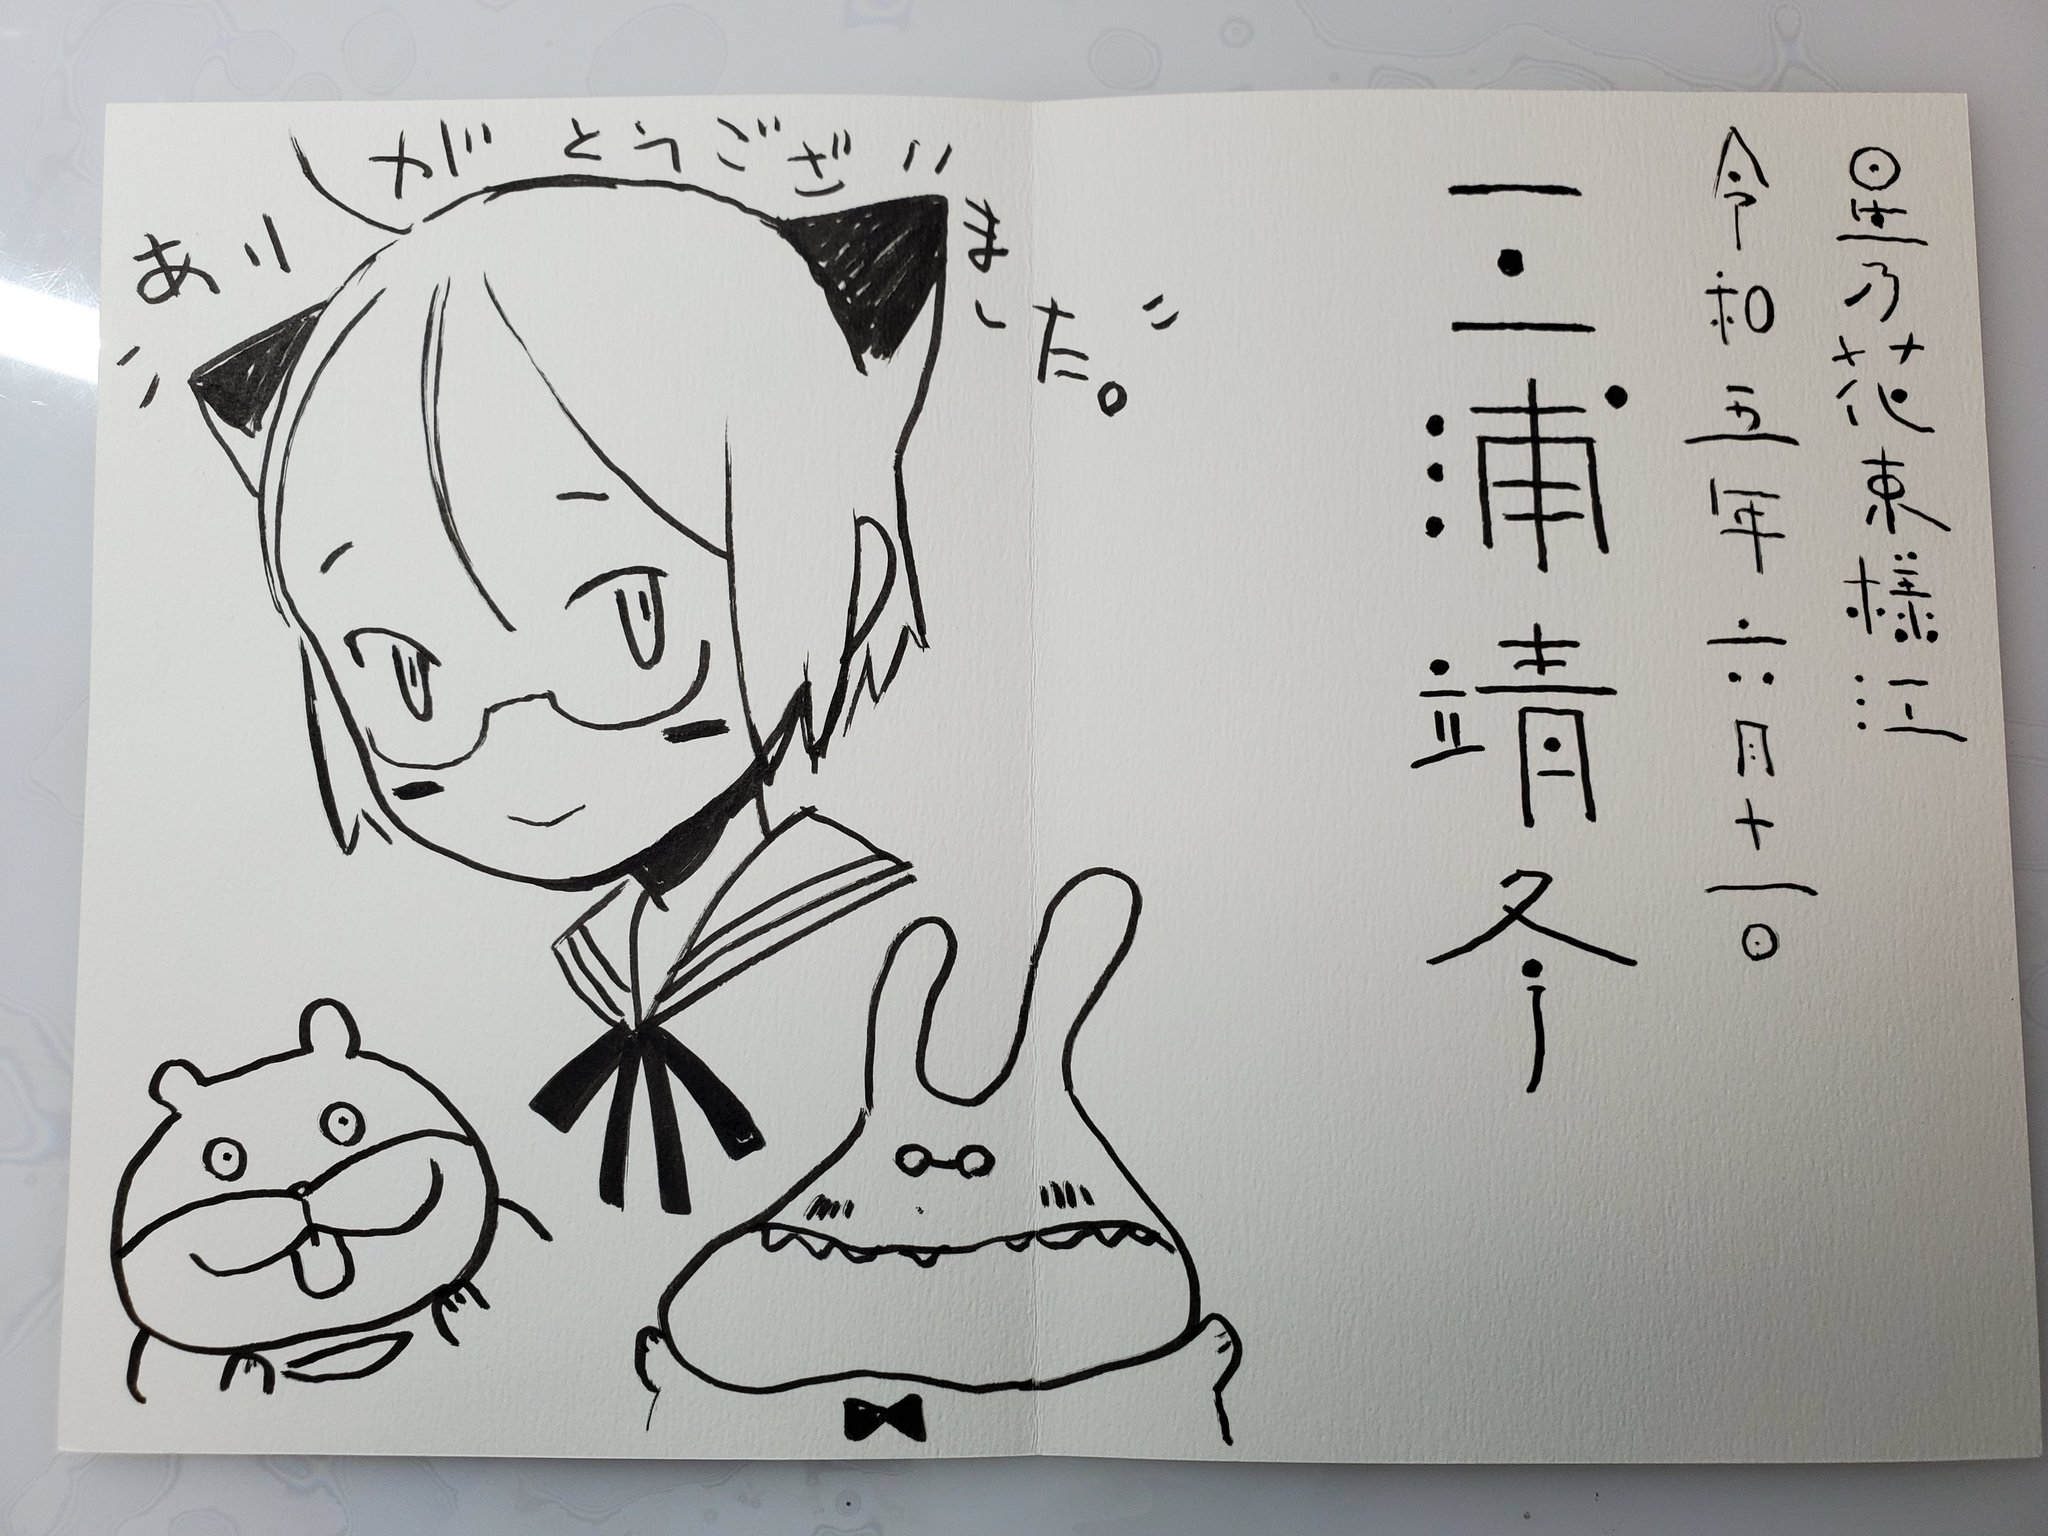 星乃花東様江
令和五年六月十一日
三浦靖冬
ありがとうございました。